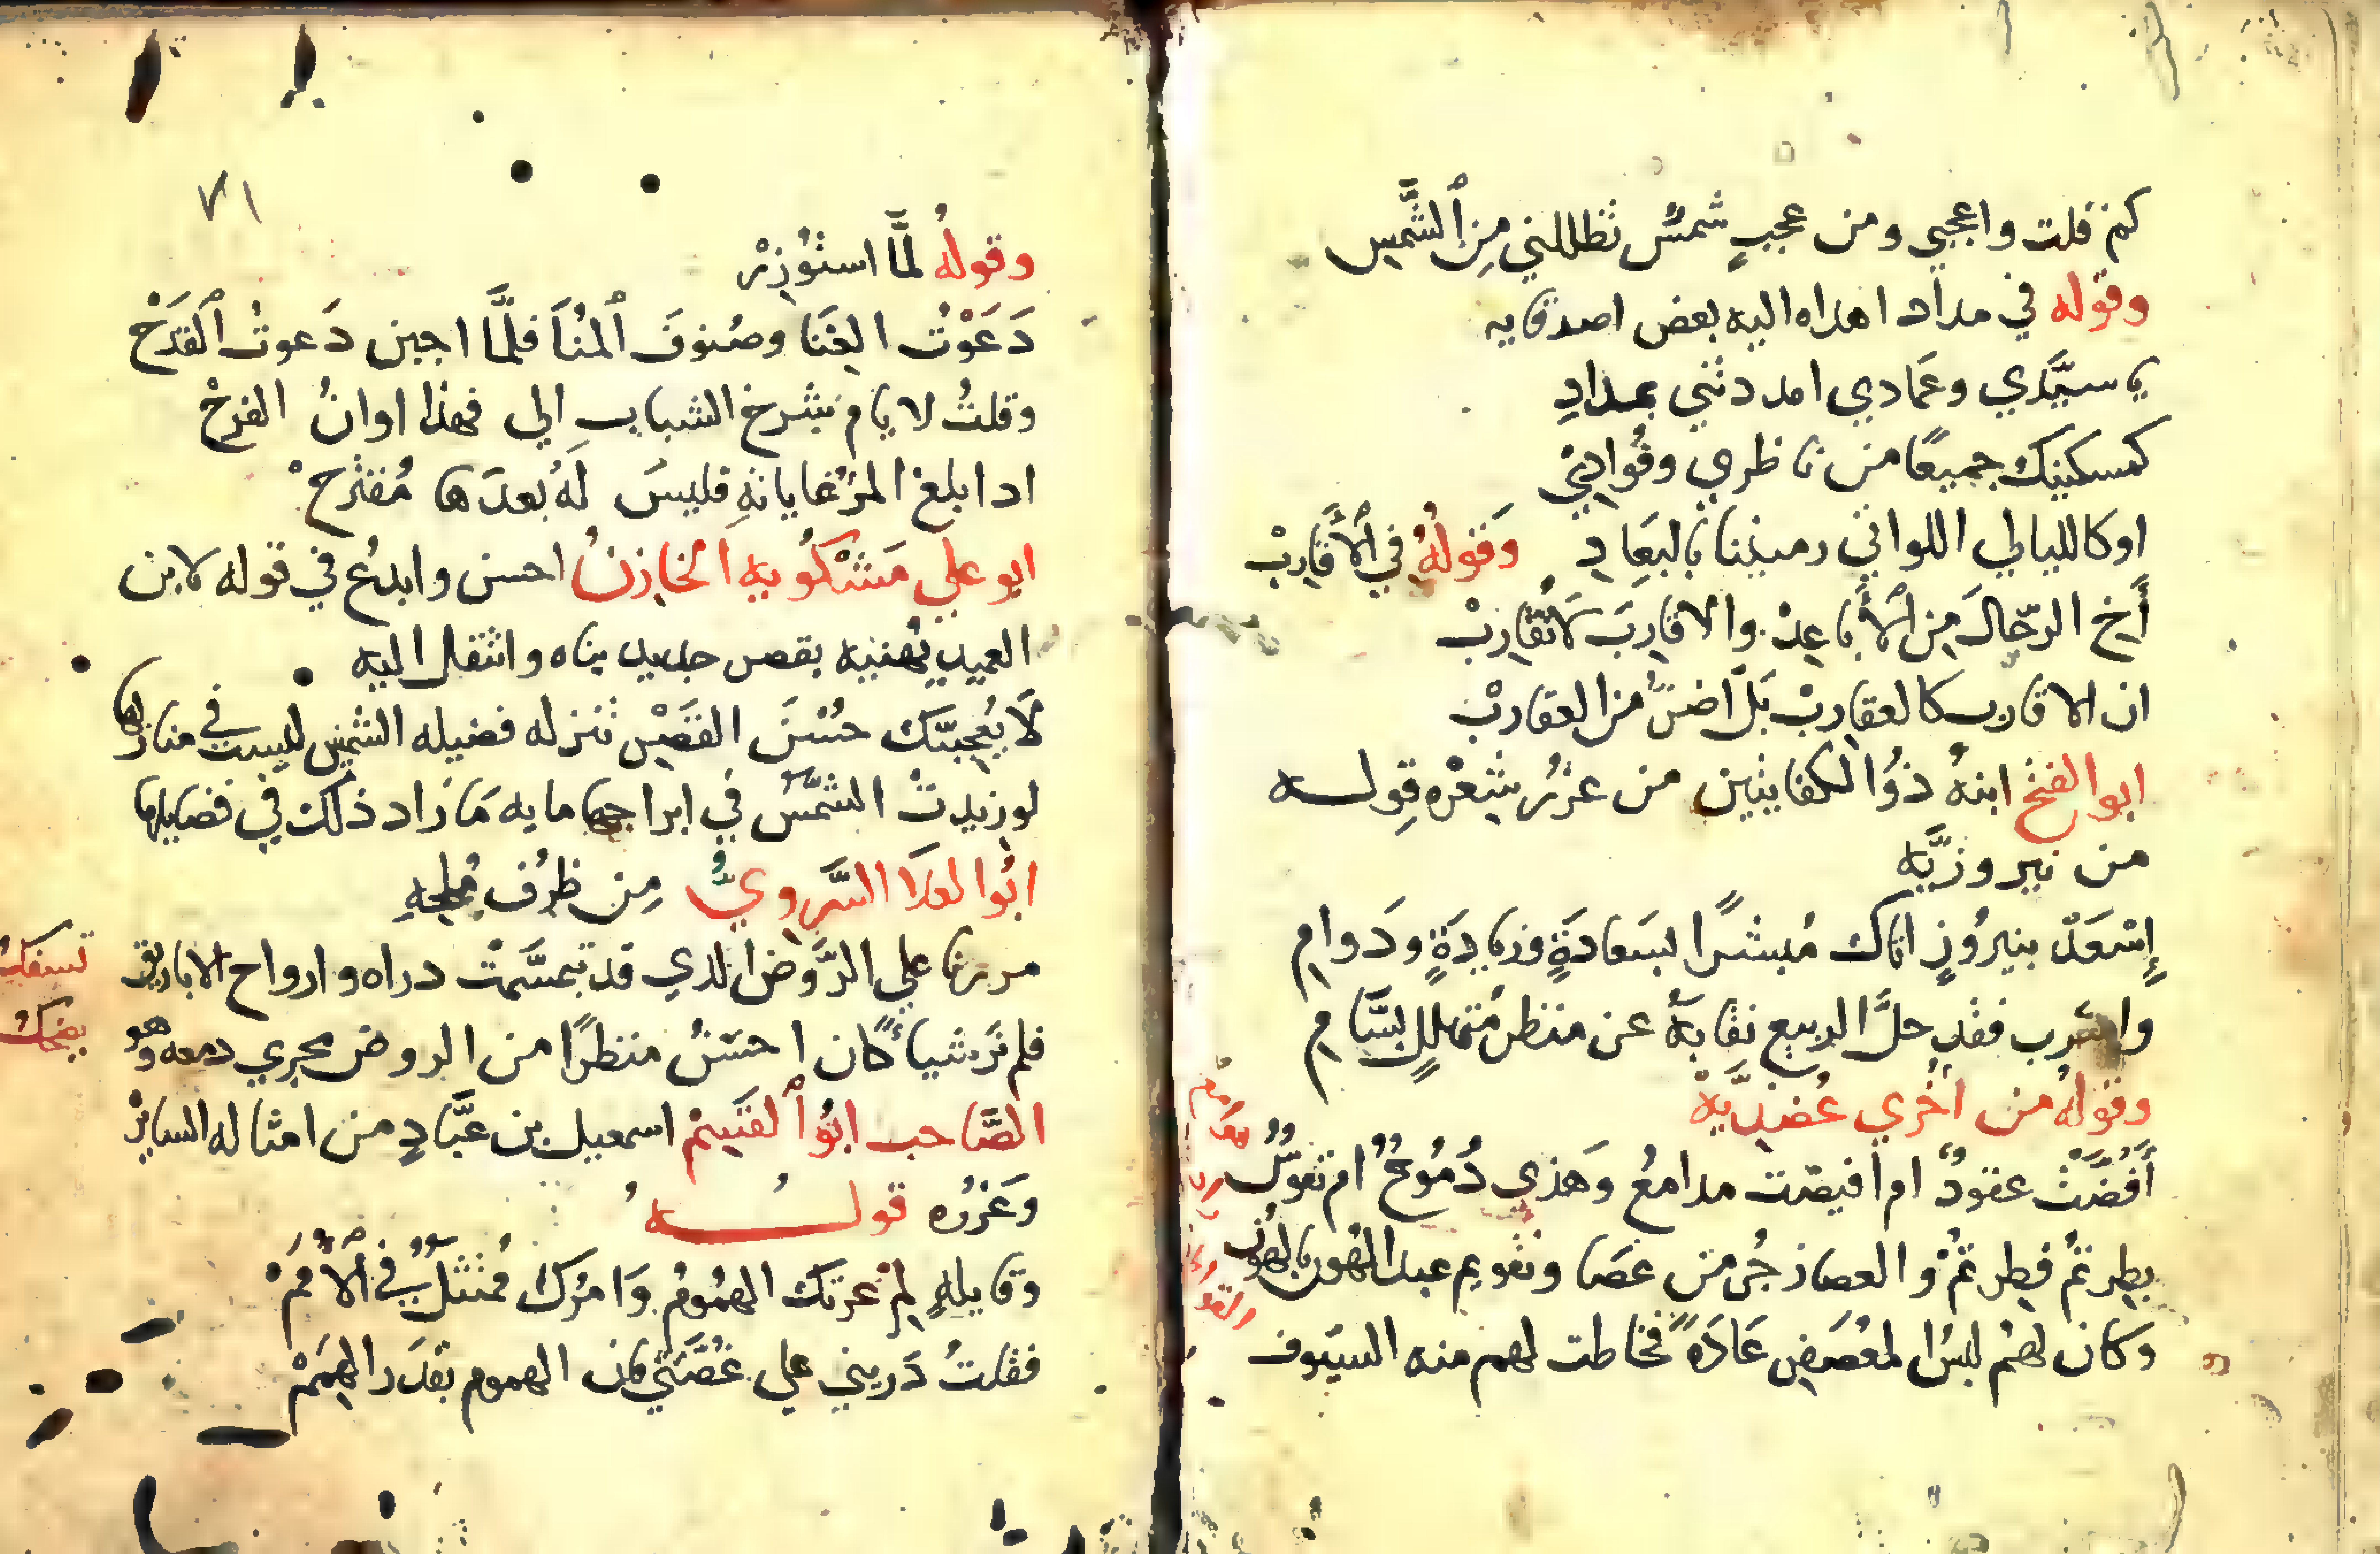 كم قلت واعجبي ومن عجبٍ شمسٌ تظللني مِن ٱلشَّمسِ
وقوله في مداد اهداه اليه بعض اصدقايه
يا سيَّدي وعَمادي امددتني بمدادِ
كمسكينك جميعًا من ناظري وفُوادِيْ
او كالليالي اللواتي رميننا بالبَعَادِ وَقولُهُ في ٱلأَقاربْ
أَخِ الرّجالَ مِن ٱلأَباعِدْ والاقاربَ لَاتُقاربْ
ان الاقارب كالعقاربْ بَلْ اضرّ من العقاربْ
ابو الفتح ابنهُ ذوُا لكفايتين من غرُر شعْره قولـــه
من نيروزيَّه
إِسْعَدْ بنيروُزٍ اتاك مُبشرًا بسَعادَةٍ وزيادَةٍ ودَوامِ
واشرب فقد حلَّ الربيع نقابهُ عن منظرٍ متهللٍ بسَّامِ
وقولهُ من اخُري عُضديَّةْ
أَفُضَّتْ عقودٌ ام افيضت مدامعُ وَهَذي دُمُوعٌ ام نفوُسٌ
بطِرتمُ فطِرتمُ والعصا زجُر من عَصَا وتقويم عبد الهُون بالهوُن
وكان لهمُ لبسُ المعُصَفرِ عَادَةً فخاطت لهم منه السيَوف
٧١
وقولهُ لمَّا استُوزِرْ
دَعَوْتُ الغِنَا وصُنوفَ ٱلمُنَا فلمَّا اجبن دَعوتُ ٱلقَدَحْ
وقلتُ لايام شرخ الشباب الي فهذا اوانُ الفرحْ
ادا بلغ المرُ غاياتهِ فليسَ لَهُ بعدَها مُقترحْ
ابو علي مَسْكوُيه الخازنُ احسن وابدعُ في قوله لابن
العميد يُهنيه بقصر جديد بناه وانتقل اليه
لَا يُعجبنّك حُسْنُ القصْرِ تنزله فضيله الشمس ليست في منازلها
لو زيدتْ الشمْسُ في ابراجها مايه مَا زاد ذلك في فضايلها
ابُوا لعلَا السَّرويُّ مِن ظرُف مُلحهِ
مررنا علي الرَّوض الدي قد تبسَّمتْ دراه وارواح الاباريق تسفكُ
فلم نرَ شياً كان احسَنُ منظرًا من الروض يجري دمعه وهو يضحكُ
الصَّاحب ابوُ ٱلقسِمْ اسمعيل بن عبَّادٍ من امثاله السايرْ
وَغرُره قولـــه
وقايلهٍ لِمْ عرتك الهمُومُ وَامرُك ممُتثلٌ في ٱلأُممْ
فقلتُ دَريني علي غصَّتي فان الهموم بقدَر الهِمَمْ